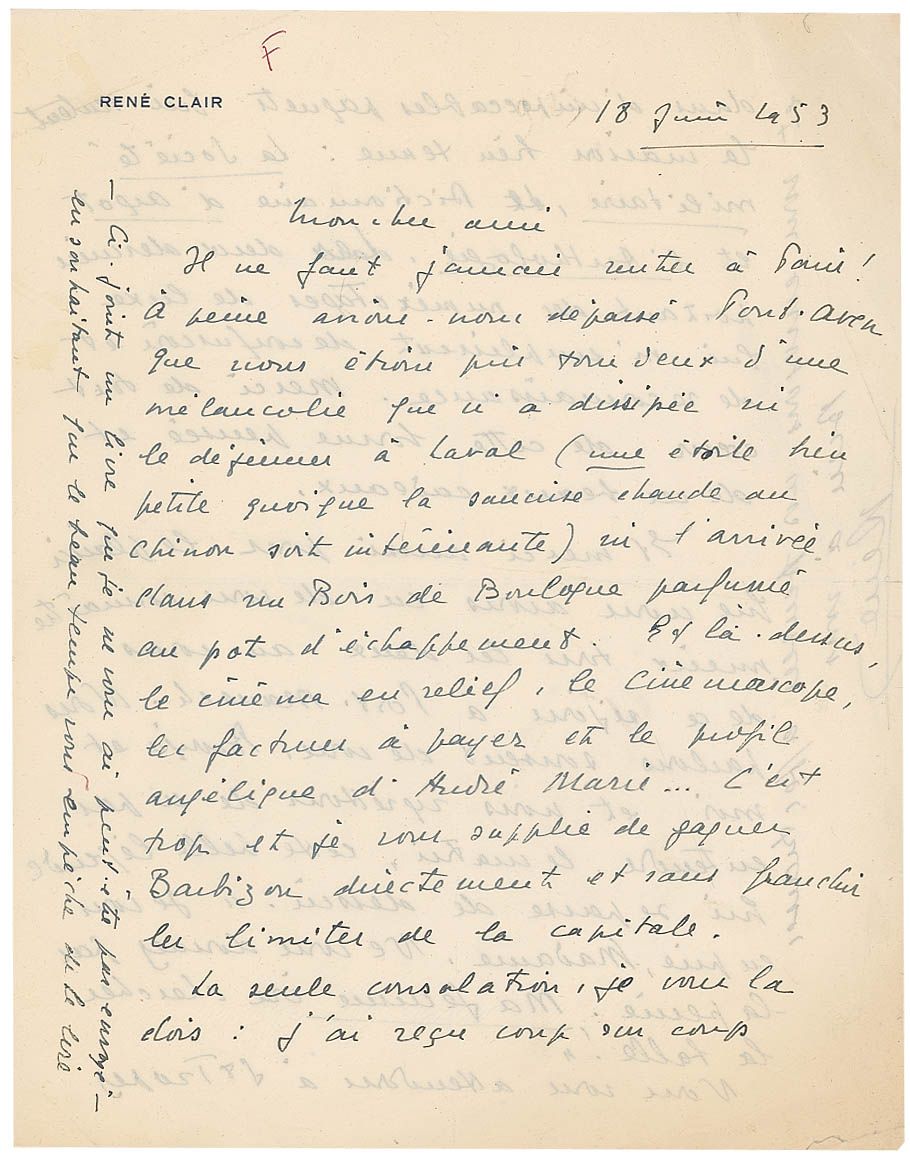 F
RENÉ CLAIR
18 Juin 1953
Mon cher ami
Il ne faut jamais rentrer à Paris !
À peine avions-nous dépassé Pont-Aven
que nous étions pris tous deux d'une
mélancolie que n'a dissipée ni
le déjeuner à Laval (une étoile bien
petite quoique la saucisse chaude au
Chinon soit intéressante) ni l'arrivée
dans un Bois de Boulogne parfumé
au pot d'échappement. Et là-dessus,
le cinéma en relief, le Cinémascope,
les factures à payer et le profil
angélique d'André Marie... C'est
trop et je vous supplie de gagner
Barbizon directement et sans franchir
les limites de la capitale.
La seule consolation, je vous la
dois : j'ai reçu coup sur coup
— Ci-joint un livre que je ne vous ai peut-être pas envoyé —
en souhaitant que le beau temps vous empêche de le lire